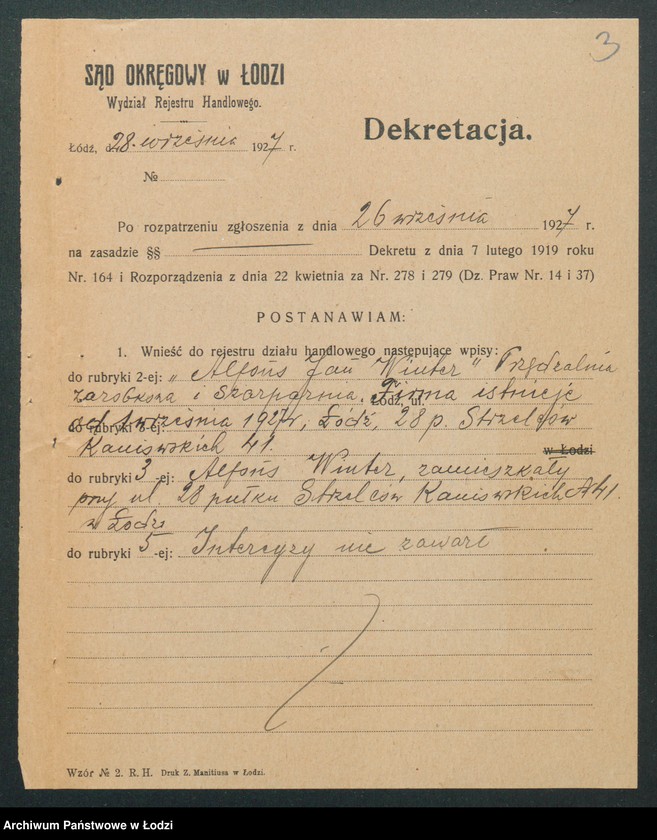 3
SĄD OKRĘGOWY w ŁODZI
Wydział Rejestru Handlowego.
Dekretacja.
Łódź, d. 28. września 1927 r.
№
Po rozpatrzeniu zgłoszenia z dnia 26 września 1927 r.
na zasadzie §§ Dekretu z dnia 7 lutego 1919 roku
Nr. 164 i Rozporządzenia z dnia 22 kwietnia za Nr. 278 i 279 (Dz. Praw Nr. 14 i 37)
POSTANAWIAM:
1. Wnieść do rejestru działu handlowego następujące wpisy:
do rubryki 2-ej: „Alfons Jan Winter" Przędzalnia
zarobkowa i Szarparnia. Firma istnieje
Łódź, ul.
od 1 września 1927 r., Łódź, 28 p. Strzelców
do rubryki -ej:
Kaniowskich 41.
w Łodzi
do rubryki 3-ej: Alfons Winter, zamieszkały
przy ul. 28 pułku Strzelców Kaniowskich № 41.
w Łodzi
do rubryki 5-ej: Intercyzy nie zawarł
Wzór № 2. R. H. Druk Z. Manitiusa w Łodzi.
Archiwum Państwowe w Łodzi